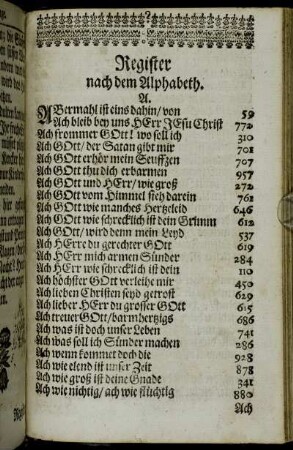 Register
nach dem Alphabeth.
A.
ABermahl ist eins dahin/ von 59
Ach bleib bey uns HErr JEsu Christ 772
Ach frommer GOtt! wo soll ich 310
Ach GOtt/ der Satan gibt mir 701
Ach GOtt erhör mein Seufftzen 707
Ach GOtt thu dich erbarmen 957
Ach GOtt und HErr/ wie groß 272
Ach GOtt vom Himmel sieh darein 761
Ach GOtt wie manches Hertzeleid 646
Ach GOtt wie schrecklich ist dein Grimm 612
Ach GOtt/ wird denn mein Leyd 537
Ach HErre du gerechter GOtt 619
Ach HErr mich armen Sünder 284
Ach HErr wie schrecklich ist dein 110
Ach höchster GOtt verleihe mir 450
Ach lieben Christen seyd getrost 629
Ach lieber HErr du grosser GOtt 615
Ach treuer GOtt/ barmhertzigs 686
Ach was ist doch unser Leben 741
Ach was soll ich Sünder machen 286
Ach wenn kommet doch die 928
Ach wie elend ist unser Zeit 878
Ach wie groß ist deine Gnade 341
Ach wie nichtig/ ach wie flüchtig 880
Ach